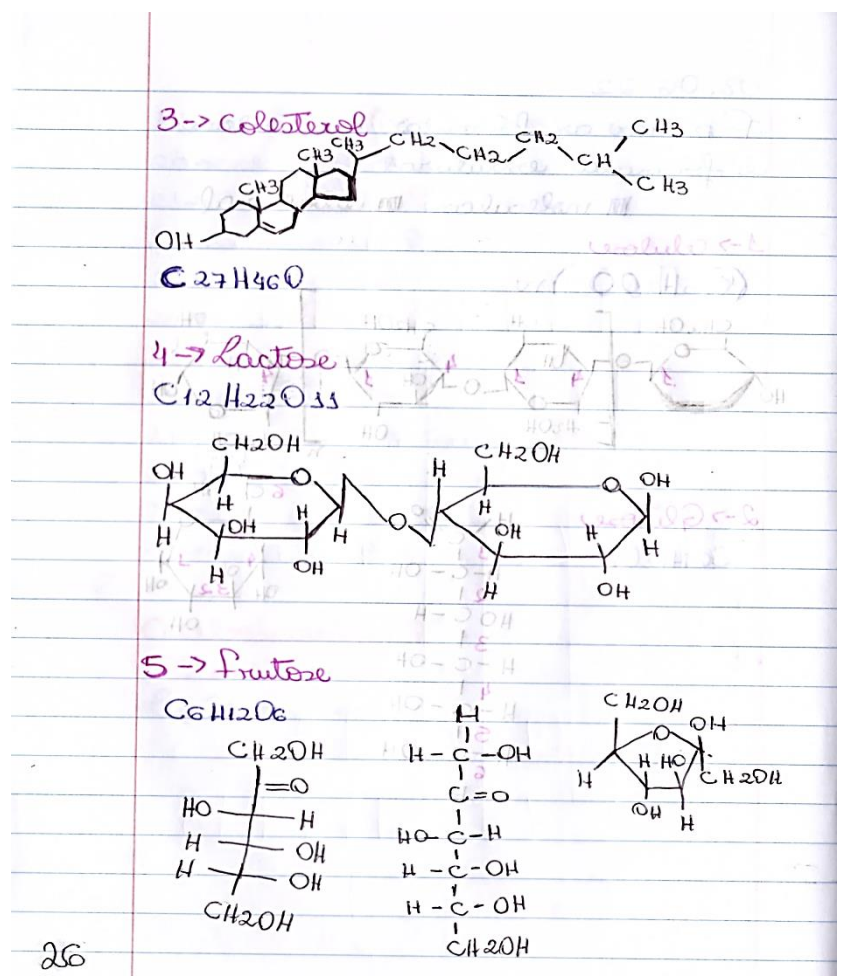 3-> Colesterol
CH3 CH3 CH3 CH2 CH2 CH2 CH CH3 CH3
OH
C27H46O
4-> Lactose
C12H22O11
CH2OH CH2OH
OH O H O OH
H H OH H H O H OH H H
H OH H OH
5-> frutose
C6H12O6
CH2OH
=O
HO H
H OH
H OH
CH2OH
H
H-C-OH
C=O
HO-C-H
H-C-OH
H-C-OH
CH2OH
CH2OH
O OH
H H HO CH2OH
OH H
256